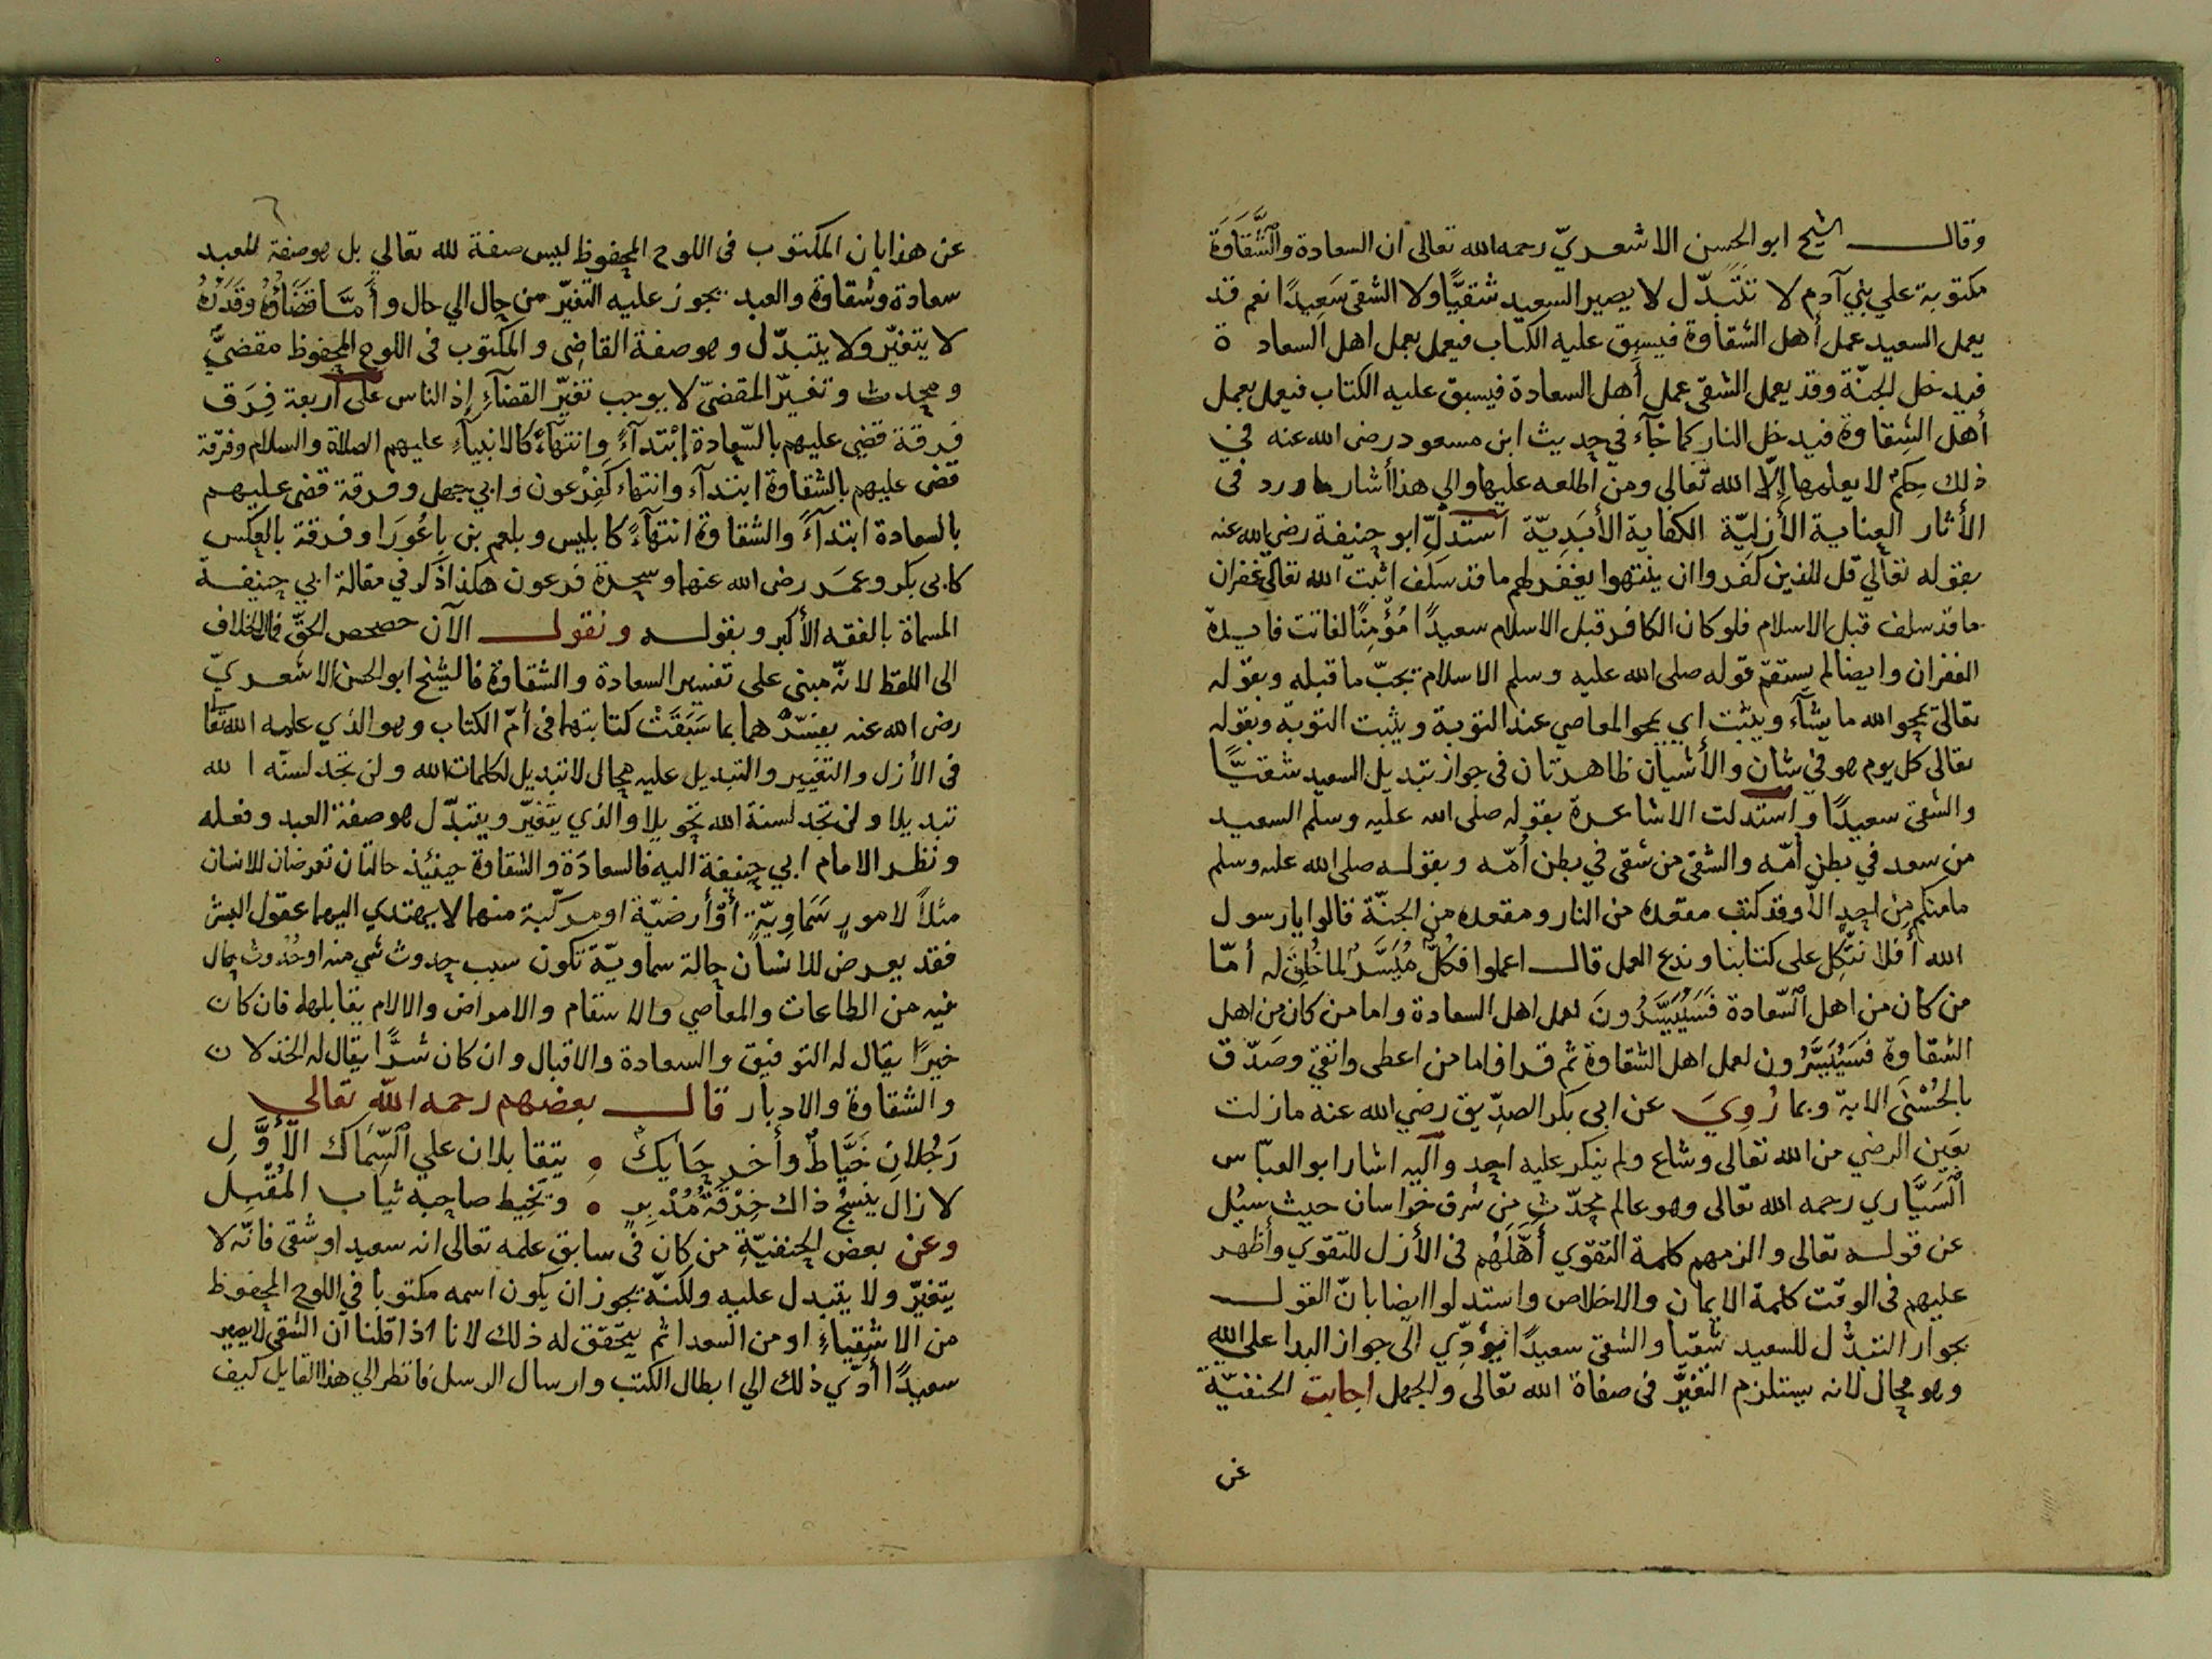 وقال الشيخ ابو الحسن الاشعريّ رحمه الله تعالى ان السعادة والشَّقَاوَةَ
مكتوبة علي بني آدم لا تتبّدّل لا يصير السعيد شقيًّا ولا الشقى سَعِيدًا نعم قد
يعمل السعيد عمل أهل الشقاوة فيسبق عليه الكتاب فيعمل بعمل اهل السعاد ة
فيدخل الجنّة وقد يعمل الشقى عمل أهل السعادة فيسبق عليه الكتاب فيعمل بعمل
أهل الشِقاوة فيدخل النار كما جآء في حديث ابن مسعود رضى الله عنه في
ذلك حِكَمٌ لا يعلمها إلّا الله تعالى ومن اطلعه عليها والي هذا أشار ما ورد فى
الأثار العناية الأزليّة الكفاية الأبَدِيّة استدلّ ابو حنيفة رضي الله عنه
بقوله تعالي قل للذين كفروا ان ينتهوا يغفر لهم ما قد سَلف اثبت الله تعالى غفران
ما قد سلف قبل الاسلام فلو كان الكافر قبل الاسلام سعيدًا مُؤْمِنًا لفاتت فايدة
الغفران وايضا لم يستقم قوله صلى الله عليه وسلم الاسلام يجبّ ما قبله وبقوله
تعالى يمحو الله ما يشآء ويثبت اي يمحو المعاصي عند التوبة ويثبت التوبة وبقوله
تعالى كل يوم هو في شان والأشيان ظاهرتان فى جواز تبديل السعيد شقيًّا
والشقى سعيدًا واستدلت الاشاعرة بقوله صلى الله عليه وسلم السعيد
من سعد في بطن أمّه والشقى من شقى في بطن أمّه وبقوله صلى الله عليه وسلم
مامنكم من احدٍ الّا وقد كتب مقعده من النار ومقعده من الجنّة قالوا يا رسول
الله أفلا نتّكل على كتابنا وندع العمل قال اعملوا فكلٌّ مُيَسَّرٌ لما خُلِقَ له أمّا
من كان من اهل السّعادة فَسَيُيَسَّرُونَ لعمل اهل السعادة واما من كان من اهل
الشقاوة فسَيُيَسَّرُون لعمل اهل الشقاوة ثم قرا فاما من اعطى واتقى وصَدّق
بالحُسْنَى الاية وبما رُوِيَ عن ابى بكر الصدّيق رضي الله عنه ما زلت
بعَين الرضي من الله تعالى وشاع ولم ينكر عليه احد وآليه اشار ابو العبّاس
السَيَّاري رحمه الله تعالى وهو عالم محدّث من شرق خراسان حيث سئل
عن قوله تعالى والزمهم كلمة التقوي أَهَّلَهُم فى الأزل للتقوي وأظهر
عليهم فى الوقت كلمة الايمان والاخلاص واستدلوا ايضا بانّ القول
بجواز التبدّل للسعيد شقيا والشقى سعيدًا يؤدّي الى جواز البدا على الله
وهو محال لانه يستلزم التغيّر فى صفاة الله تعالى والجهل اجابت الحنفيّة
عن
عن هذا بان المكتوب فى اللوح المحفوظ ليس صفة لله تعالي بل هو صفة للعبد
سعادة وشقاوة والعبد يجوز عليه التغيّر من حال الي حال وأَمَّا قضَاؤُهُ وقَدَرُهُ
لا يتغيّر ولا يتبدّل وهو صفة القاضِى والمكتوب فى اللوح المحفوظ مقضيٌّ
ومحدث وتغيّر المقضىّ لا يوجب تغيّر القضآءِ إذ الناس على أربعة فِرَق
فرقة قضي عليهم بالسّعادة إبْتدآءً وانتهآءً كالانبيآءِ عليهم الصلاة والسلام وفرقة
قضى عليهم بالشقاوة ابتدآءً وانتهاء كفِرْعون وابي جهل وفرقة قضى عليهم
بالسعادة ابتدآءً والشقاوة انتهآءً كابليس وبلعم بن باعُورَا وفرقة بالعكس
كابى بكر وعمَر رضى الله عنهما وسحرة فرعون هكذا ذكر في مقالة ابي حنيفة
المسماة بالفقه الأكبر وبقوله ونقول الآن حصحص الحقّ فمآل الخلاف
الى اللفظ لانّه مبنى على تفسير السعادة والشقاوة فالشيخ ابو الحسن الاشعريّ
رضى الله عنه يفسّرهما بما سَبَقَتْ كتابتهما فى أمّ الكتاب وهو الذي علمه الله تعا
فى الأزل والتغيير والتبديل عليه محال لا تبديل لكلمات الله ولن تجد لسنّه ا لله
تبديلا ولن تجد لسنة الله تحويلا والذي يتغيّر ويتبدّل هو صفة العبد وفعله
ونظر الامام ابي حنيفة اليه فالسعادَة والشقاوة حينئذ حالتان تعرضان للانسان
مثلاً لامورٍ سَمَاوِيّةٍ أوْ أرضيّة او مركّبة منهما لا يهتدي اليهما عقول البشر
فقد يعرض للانسان حالة سماويّة تكون سبب حدوث شي منه او حُدُوث حال
فيه من الطاعات والمعاصي والاسقام والامراض والالام يتقابلهله فان كان
خيرًا يقال له التوفيق والسعادة والاقبال وان كان شرًّا يقال له الخذلان
والشقاوة والادبار قال بعضهم رحمه الله تعالي
رَجُلانِ خَيَّاطٌ وأخر حَايكٌ ۰ يتقابلان علي السِّمَاك الأوَّلِ
لا زال ينسُج ذاك خِرْقَةَ مُدْبِرٍ ۰ ويخِيط صاحبه ثياب المُقْبِلِ
وعن بعض الحنفيّة من كان فى سابق علمه تعالى انه سعيد او شقى فانّه لا
يتغيّر ولا يتبدل عليه ولكنّه يجوز ان يكون اسمه مكتوبا في اللوح المحفوظ
من الاشقياءِ او من السعدا ثم يتحقق له ذلك لانا اذا قلنا ان الشقى لا يصير
سعيدًا أدّي ذلك الي ابطال الكتب وارسال الرسل فانظر الي هذا القايل كيف